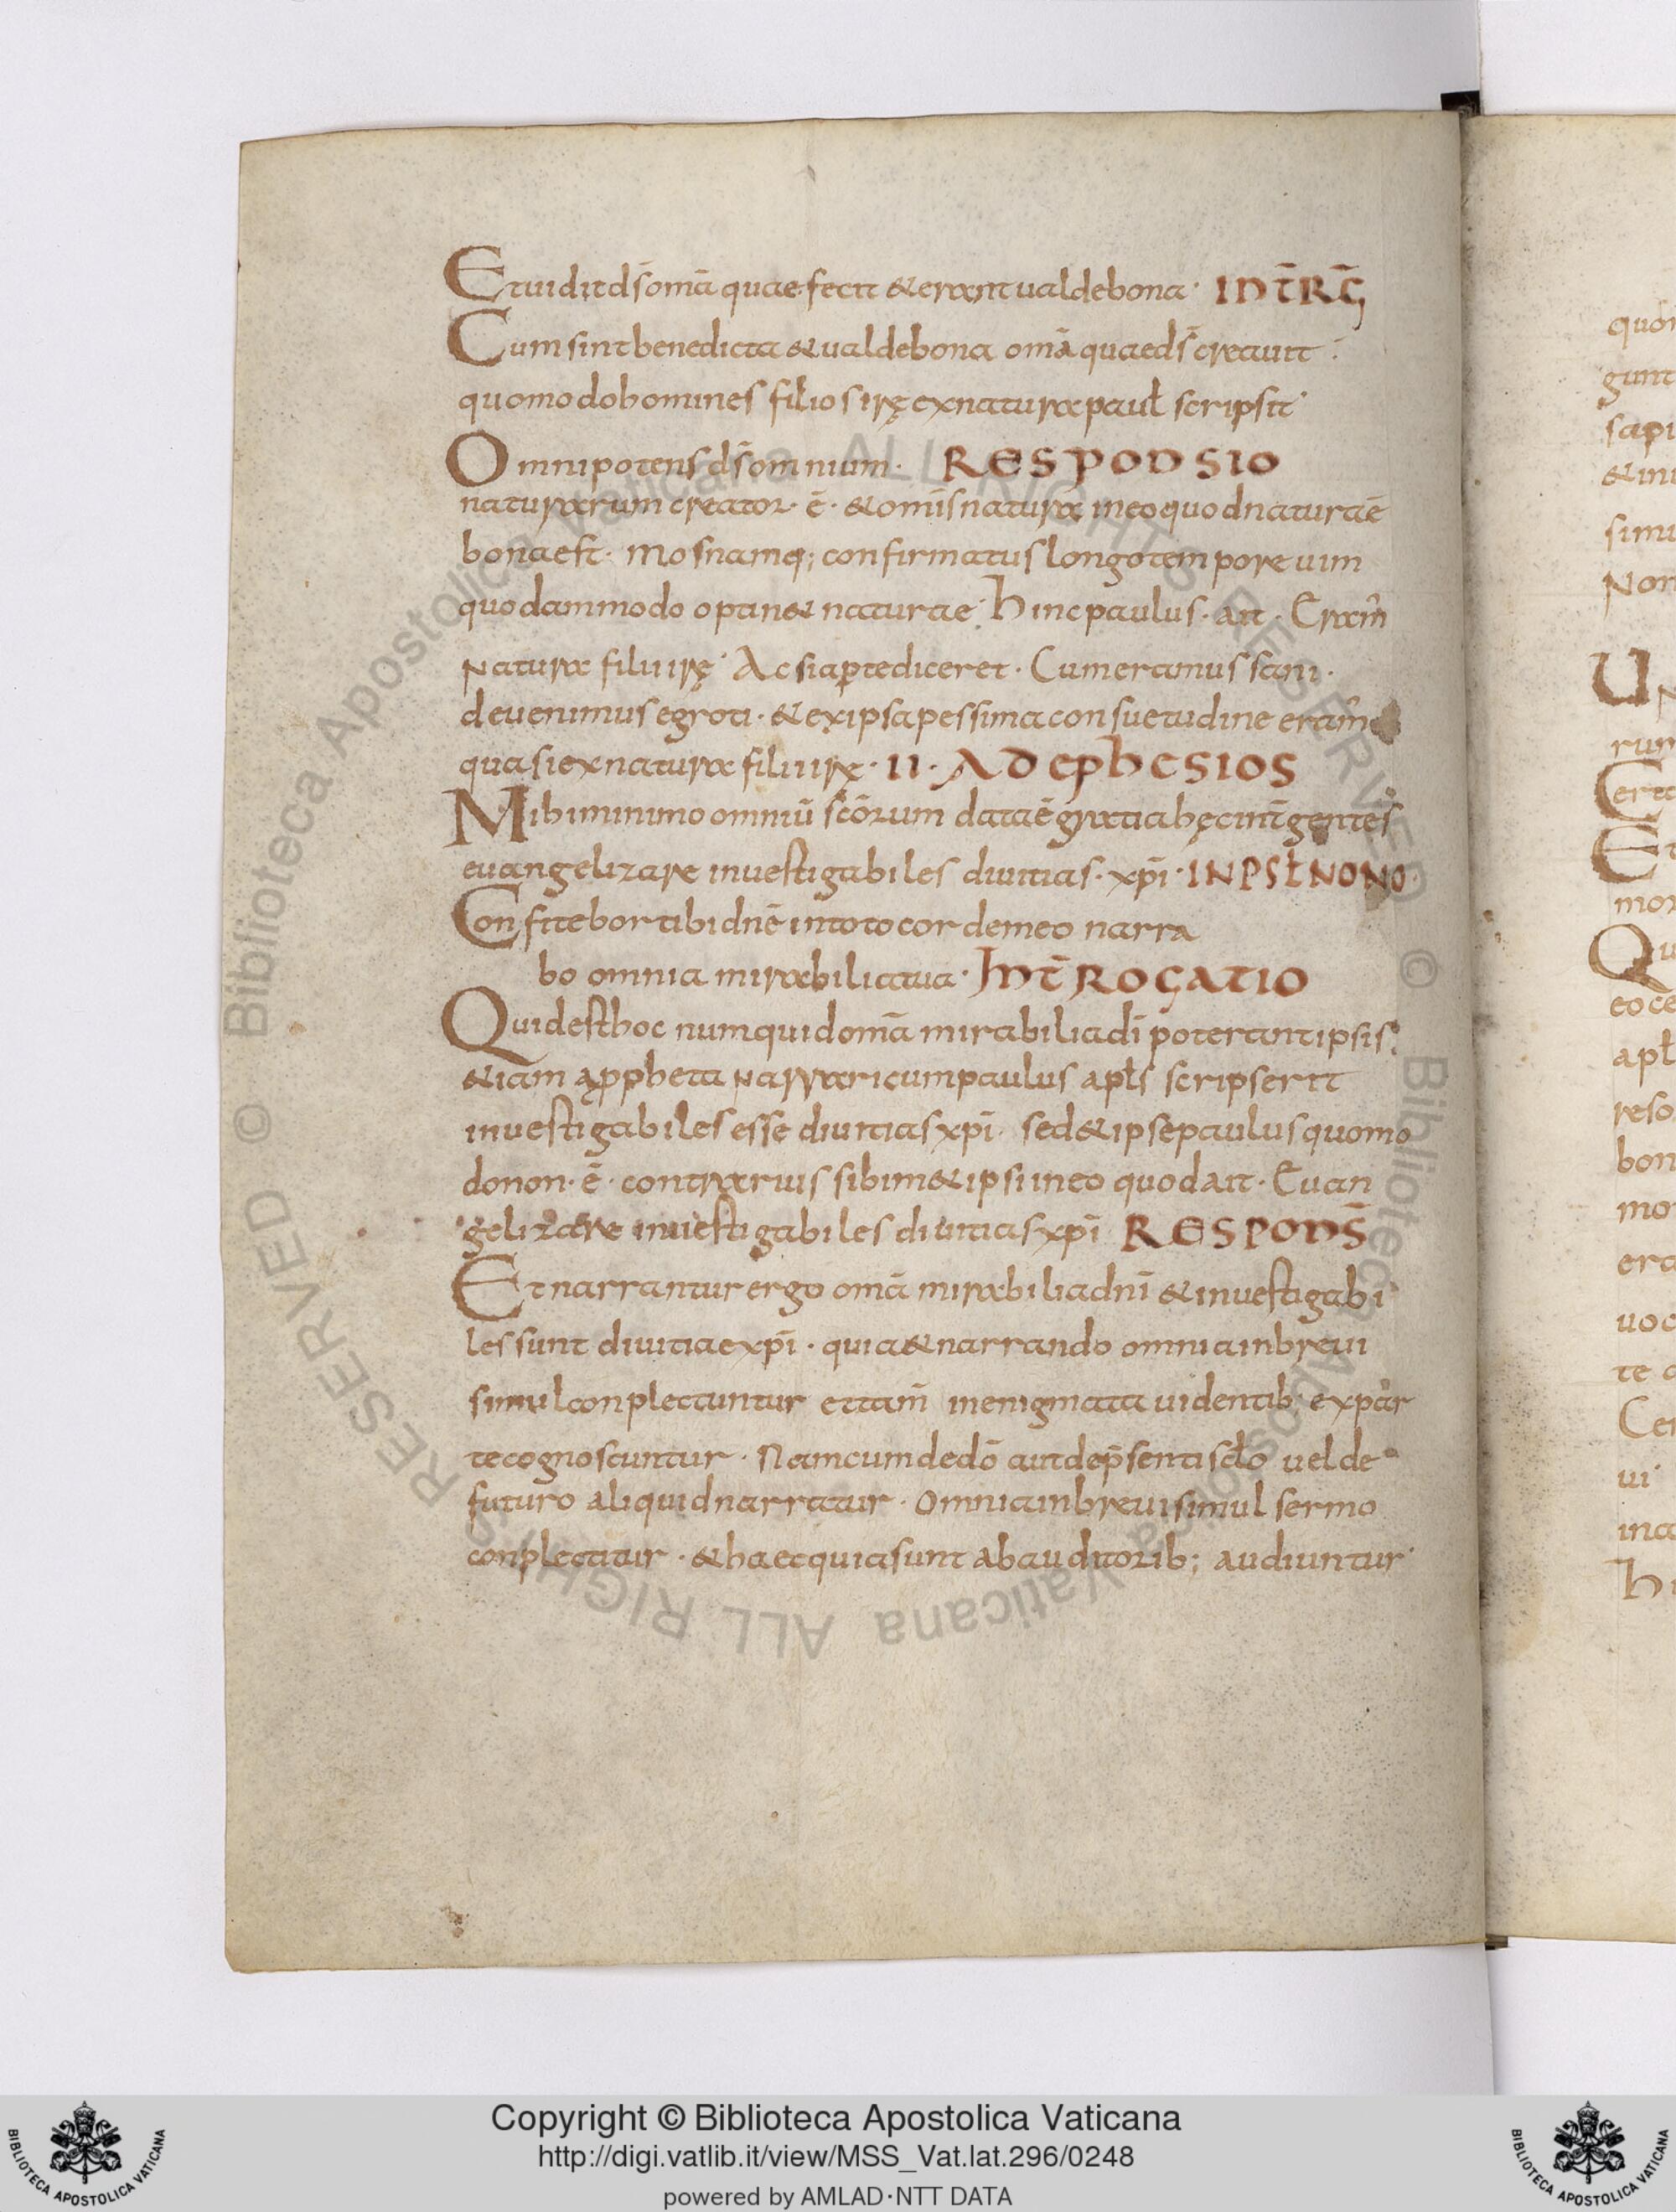 Et uidit ds̄ om̄a quae fecit & erant ualde bona · INT̄RḠ
Cum sint benedicta & ualde bona om̄a quae ds̄ creauit ·
quomodo homines filios irę ex natura paul̄ scripsit ·
Omnipotens ds̄ omnium · RESPONSIO
naturarum creator · ē · & om̄is natura in eo quod natura ē
bona est · Mos namq; confirmatus longo tempore uim
quodammodo optin& naturae · hinc paulus · ait · Eram̄
Natura filii irę · Ac si aꝑte diceret · Cum eramus sani ·
deuenimus egroti · & ex ipsa pessima consuetudine eram̄
quasi ex natura filii irę · II · AD EPHESIOS
Mihi minimo omniū scōrum data ē gratia hęc int̄ gentes
euangelizare inuestigabiles diuitias · xp̄i · IN PSŁ NONO ·
Confitebor tibi dnē in toto corde meo narra
bo omnia mirabilia tua · INT̄ROGATIO
Quid est hoc numquid om̄a mirabilia dī poterant ipsis
&iam a ꝓpheta Narrari cum paulus apł̄s scripserit
inuestigabiles esse diuitias xp̄i · sed & ipse paulus quomo
do non · ē · contrarius sibim& ipsi in eo quod ait · Euan
gelizare inuestigabiles diuitias xp̄i RESPONS̄
Et narrantur ergo om̄a mirabilia dnī & inuestigabi
les sunt diuitiae xp̄i · quia & narrando omnia in breui
simul conplectuntur et tam̄ in enigmata uidentib; ex par
te cognoscuntur · Nam cum de dō aut de p̄senti scło uel de
futuro aliquid narratur · Omnia in breui simul sermo
conplectitur · & haec quia sunt ab auditorib; audiuntur ·
© Biblioteca Apostolica Vaticana ALL RIGHTS RESERVED
© Biblioteca Apostolica Vaticana ALL RIGHTS RESERVED
Copyright © Biblioteca Apostolica Vaticana
http://digi.vatlib.it/view/MSS_Vat.lat.296/0248
powered by AMLAD·NTT DATA
BIBLIOTECA APOSTOLICA VATICANA
BIBLIOTECA APOSTOLICA VATICANA
quon
gunt
sapi
& ini
simi
Non
Un
rum
Certe
Et
mor
Qu
eo ce
apł
reso
bon
mo
era
uoc
te
Cer
ui
ina
hi